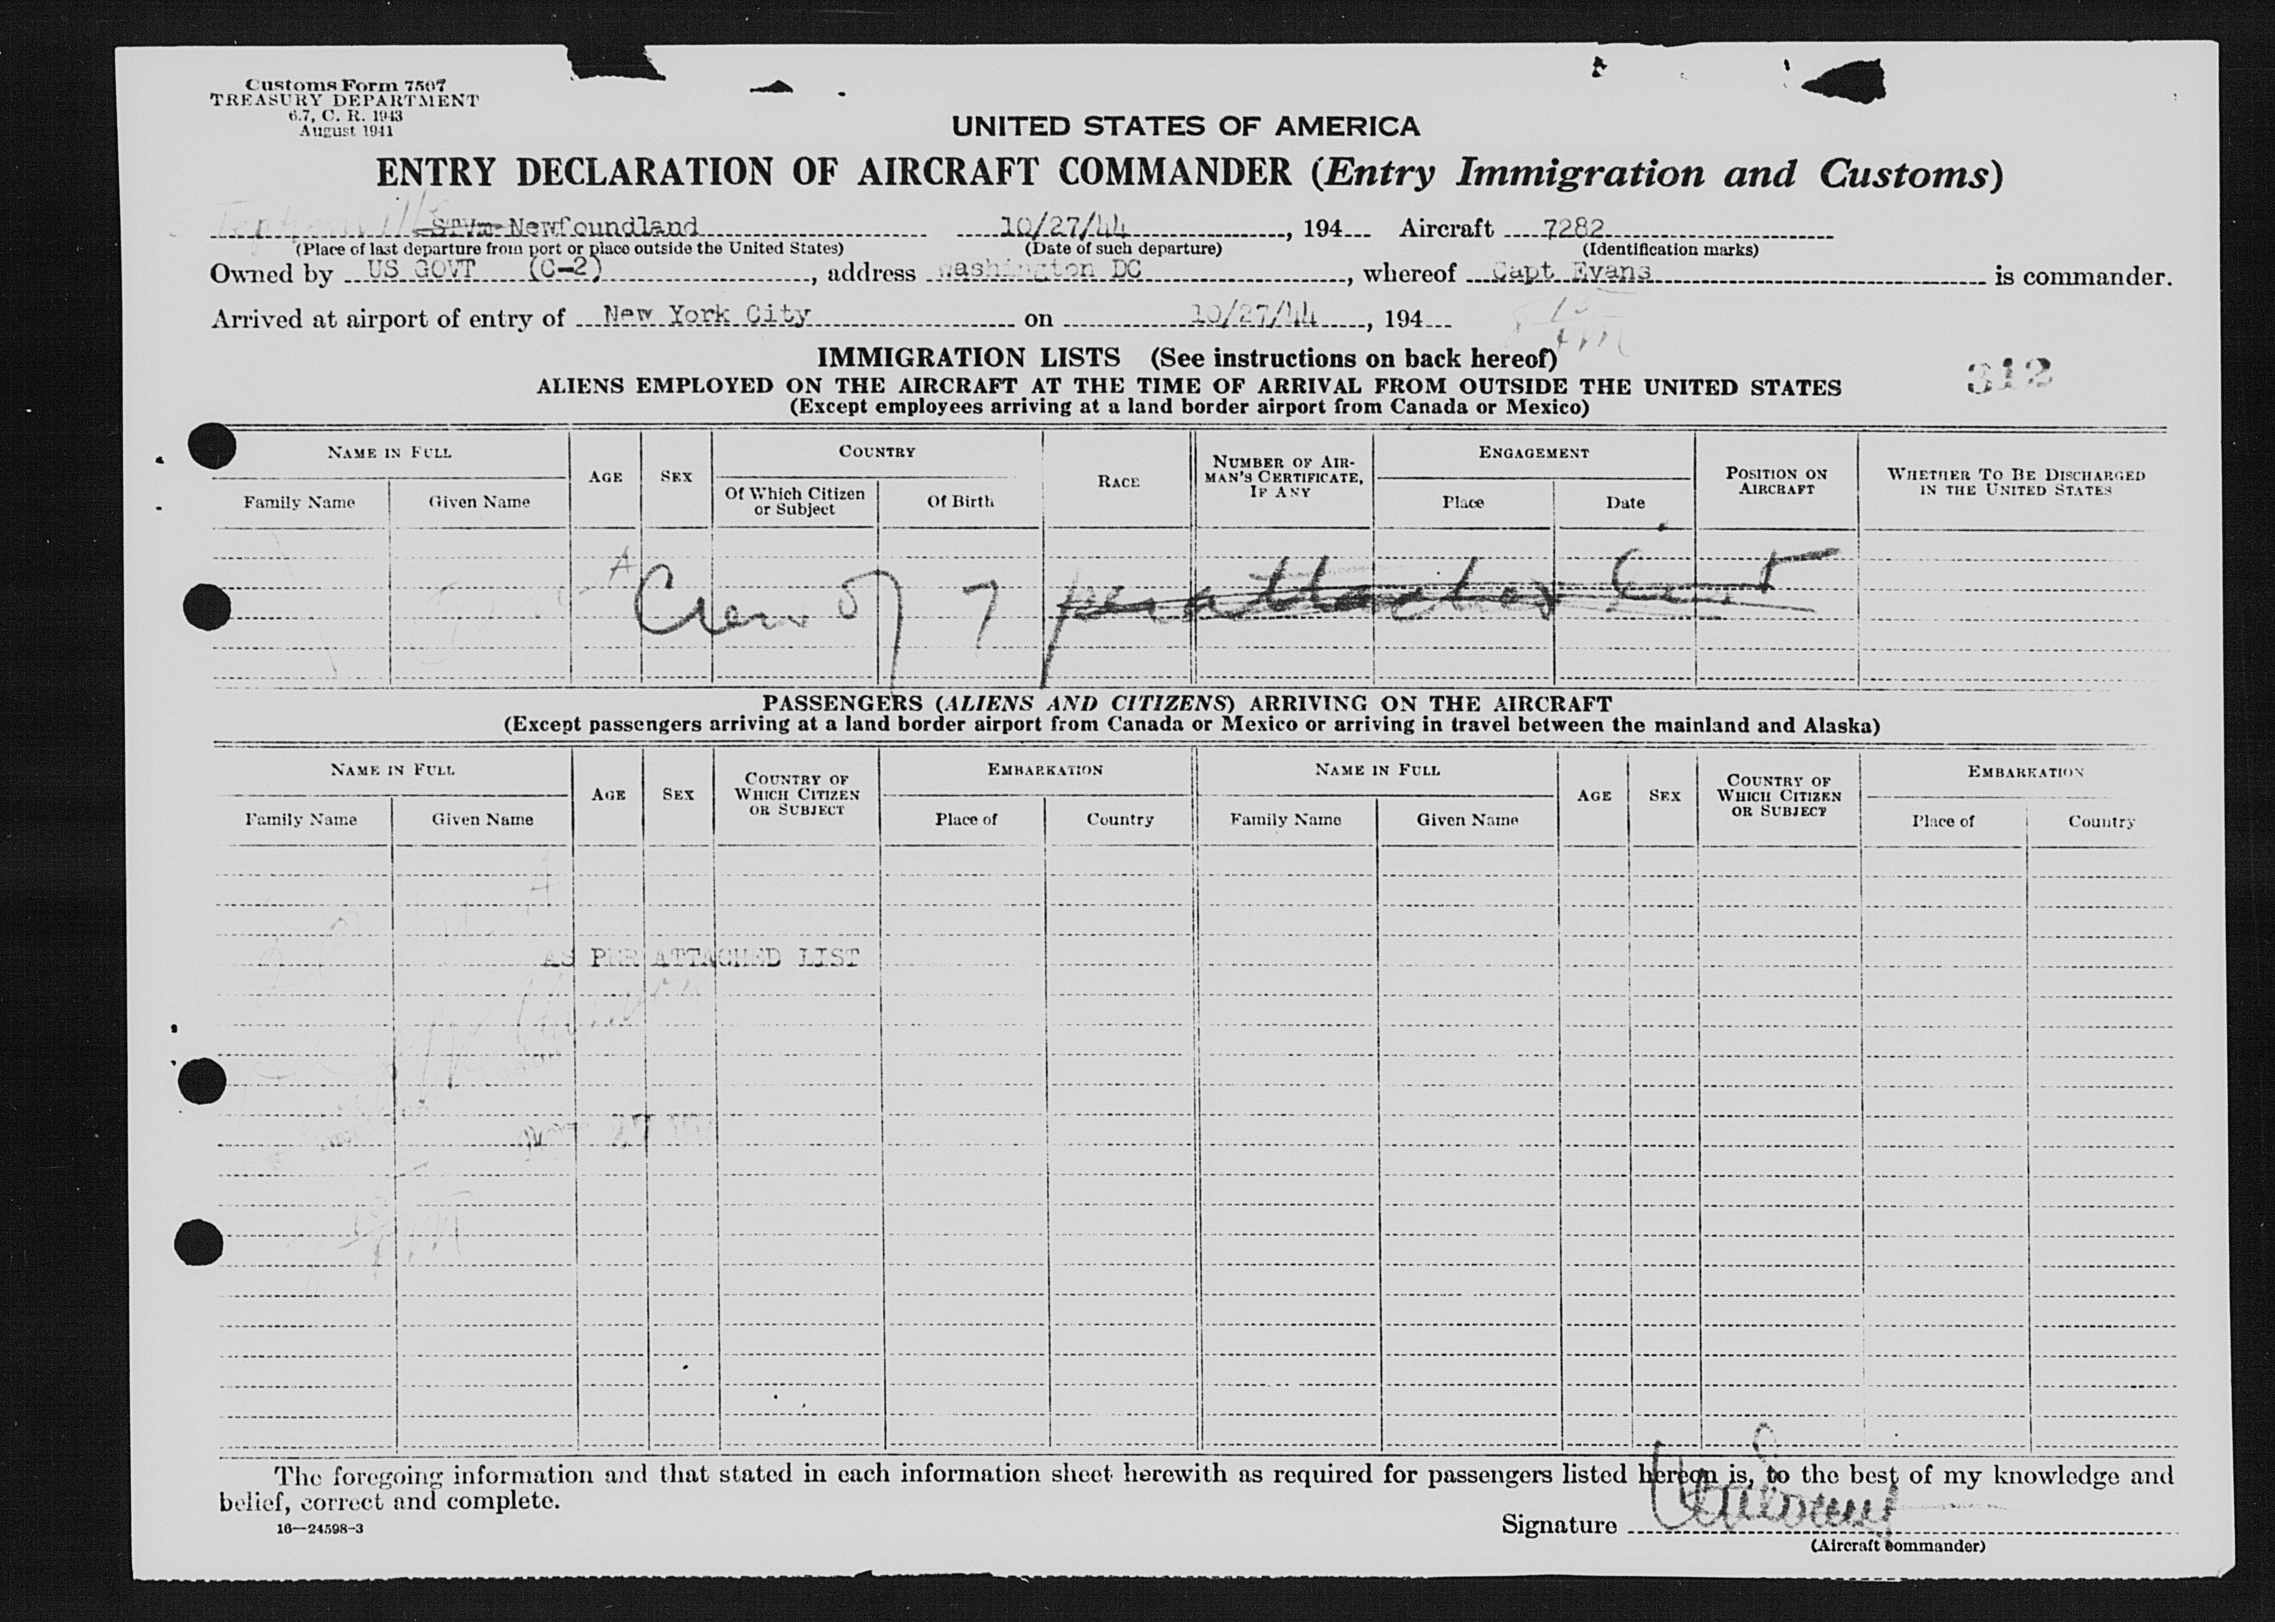 Customs Form 7507
TREASURY DEPARTMENT
6.7, C. R. 1943
August 1941
UNITED STATES OF AMERICA
ENTRY DECLARATION OF AIRCRAFT COMMANDER (Entry Immigration and Customs)
Newfoundland 10/27/44, 194 Aircraft 7282
(Place of last departure from port or place outside the United States) (Date of such departure) (Identification marks)
Owned by US GOVT (C-2), address Washington DC, whereof Capt Evans is commander.
Arrived at airport of entry of New York City on 10/27/44, 194
IMMIGRATION LISTS (See instructions on back hereof)
312
ALIENS EMPLOYED ON THE AIRCRAFT AT THE TIME OF ARRIVAL FROM OUTSIDE THE UNITED STATES
(Except employees arriving at a land border airport from Canada or Mexico)
NAME IN FULL AGE SEX COUNTRY RACE NUMBER OF AIRMAN'S CERTIFICATE, IF ANY ENGAGEMENT POSITION ON AIRCRAFT WHETHER TO BE DISCHARGED IN THE UNITED STATES
Family Name Given Name Of Which Citizen or Subject Of Birth Place Date
Crew of 7 per attached list
PASSENGERS (ALIENS AND CITIZENS) ARRIVING ON THE AIRCRAFT
(Except passengers arriving at a land border airport from Canada or Mexico or arriving in travel between the mainland and Alaska)
NAME IN FULL AGE SEX COUNTRY OF WHICH CITIZEN OR SUBJECT EMBARKATION NAME IN FULL AGE SEX COUNTRY OF WHICH CITIZEN OR SUBJECT EMBARKATION
Family Name Given Name Place of Country Family Name Given Name Place of Country
AS PER ATTACHED LIST
The foregoing information and that stated in each information sheet herewith as required for passengers listed hereon is, to the best of my knowledge and
belief, correct and complete.
16—24598-3
Signature
(Aircraft commander)